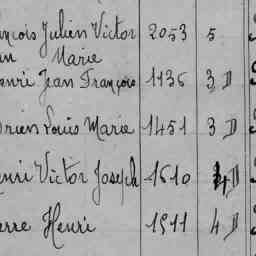 nçois Julien Victor 2053 5
Marie
enri Jean François 1136 3 D
rien Louis Marie 1451 3 D
enri Victor Joseph 1610 4 D
erre Henri 1911 4 D